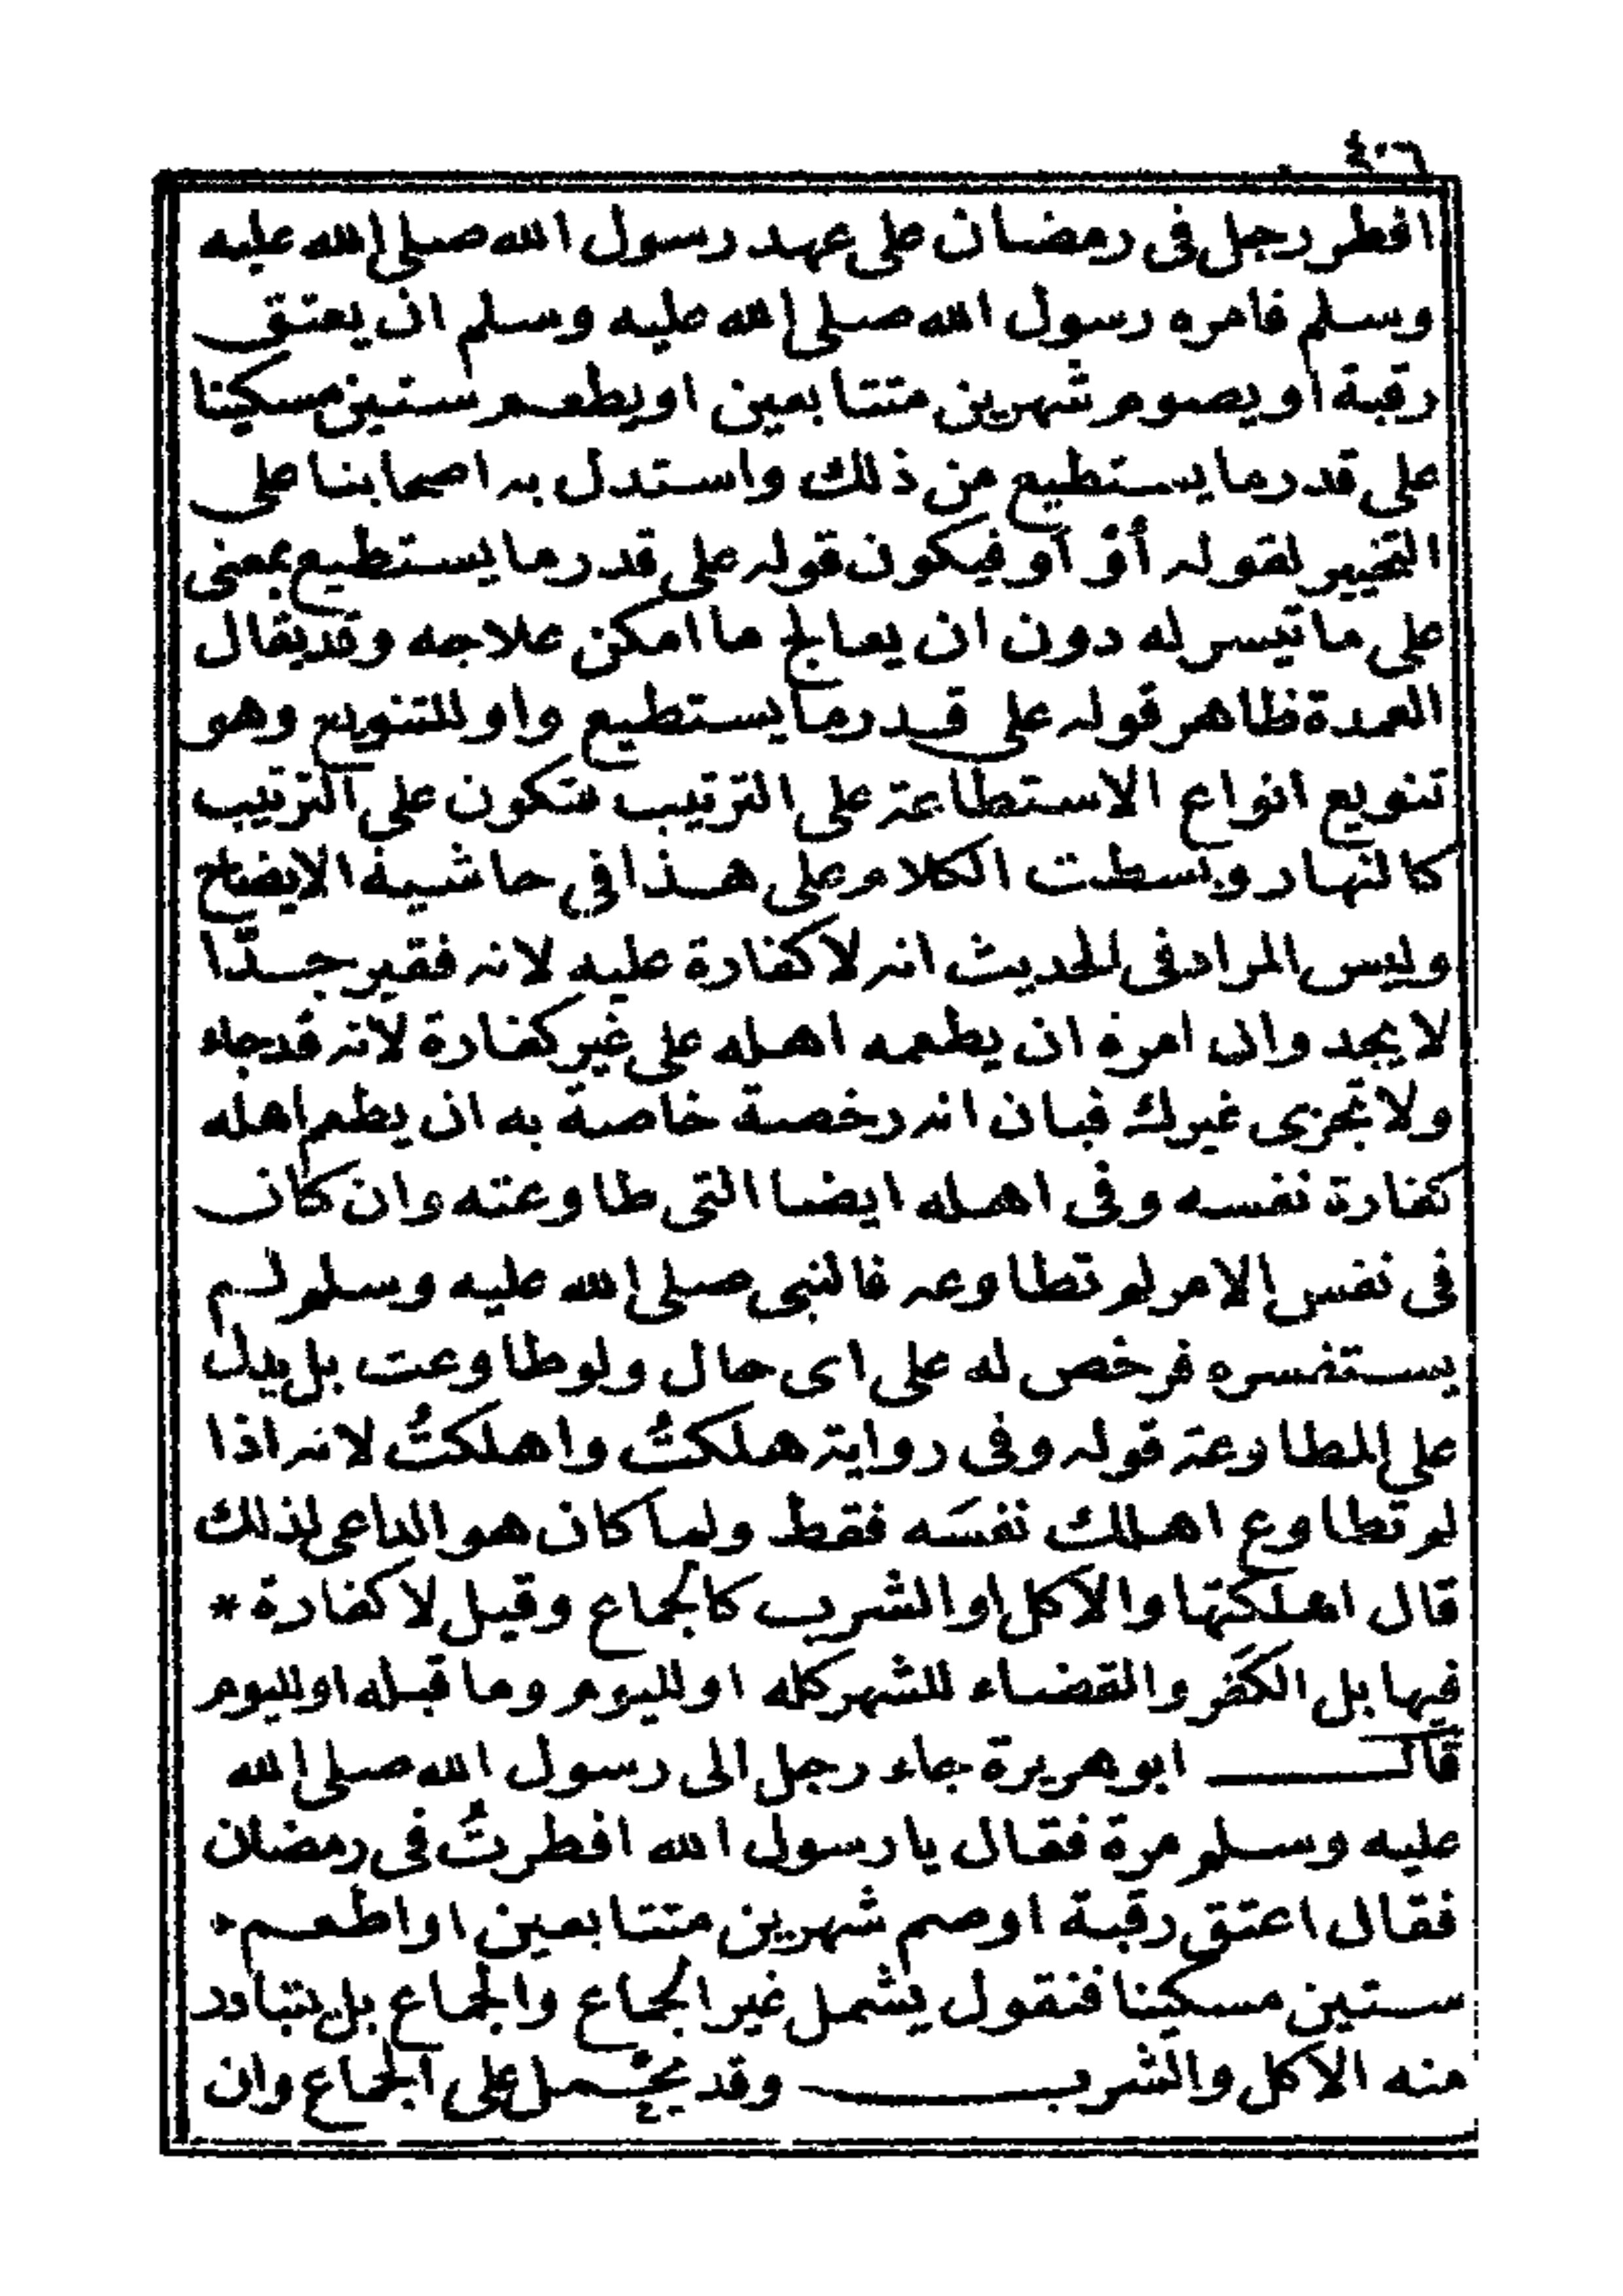 ٤٠٦
افطر رجل فى رمضان على عهد رسول الله صلى الله عليه
وسلم فامره رسول الله صلى الله عليه وسلم ان يعتق
رقبة او يصوم شهرين متتابعين او يطعم ستين مسكينا
على قدر ما يستطيع من ذلك واستدل به اصحابنا على
التخيير لقوله أوْ أو فيكون قوله على قدر ما يستطيع بمعنى
على ما تيسر له دون ان يعالج ما امكن علاجه وقد يقال
العمدة ظاهر قوله على قدر ما يستطيع واو للتنويع وهو
تنويع انواع الاستطاعة على الترتيب فتكون على الترتيب
كالنهار وبسطت الكلام على هذا في حاشية الايضاح
وليس المراد فى الحديث انه لا كفارة عليه لانه فقير جدّا
لا يجد وان امره ان يطعمه اهله على غير كفارة لانه قد جاء
ولا تجزى غيرك فبان انه رخصة خاصة به ان يطعم اهله
كفارة نفسه وفى اهله ايضا التى طاوعته وان كان
فى نفس الامر لم تطاوعه فالنبى صلى الله عليه وسلم لم
يستفسره فرخص له على اى حال ولو طاوعت بل يدل
على المطاوعة قوله وفى رواية هلكتُ واهلكتُ لانه اذا
لم تطاوع اهلك نفسَه فقط ولما كان هو الداعى لذلك
قال اهلكتها والاكل او الشرب كالجماع وقيل لا كفارة *
فيها بل الكَفر والقضاء للشهر كله او لليوم وما قبله او لليوم
قال ابو هريرة جاء رجل الى رسول الله صلى الله
عليه وسلم مرة فقال يا رسول الله افطرتُ فى رمضان
فقال اعتق رقبة او صم شهرين متتابعين او اطعم
ستين مسكينا فنقول يشمل غير الجماع والجماع بل يتبادر
منه الاكل والشرب وقد يحمل على الجماع وان